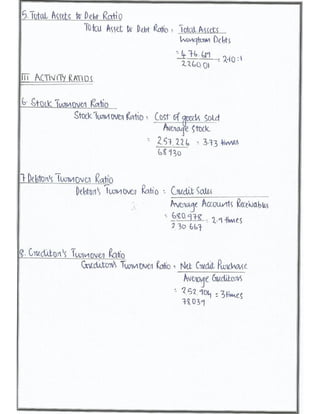 5. Total Assets to Debt Ratio
Total Asset to Debt Ratio = Total Assets
Longterm Debts
= 474619 = 2.10:1
226001
III ACTIVITY RATIOS
6. Stock Turnover Ratio
Stock Turnover Ratio = Cost of goods sold
Average Stock
= 257.226 = 3.73 times
68930
7. Debtor's Turnover Ratio
Debtor's Turnover Ratio = Credit Sales
Average Accounts Receivables
= 680978 = 2.9 times
230 667
8. Creditor's Turnover Ratio
Creditor's Turnover Ratio = Net Credit Purchase
Average Creditors
= 252.904 = 3 times
78039